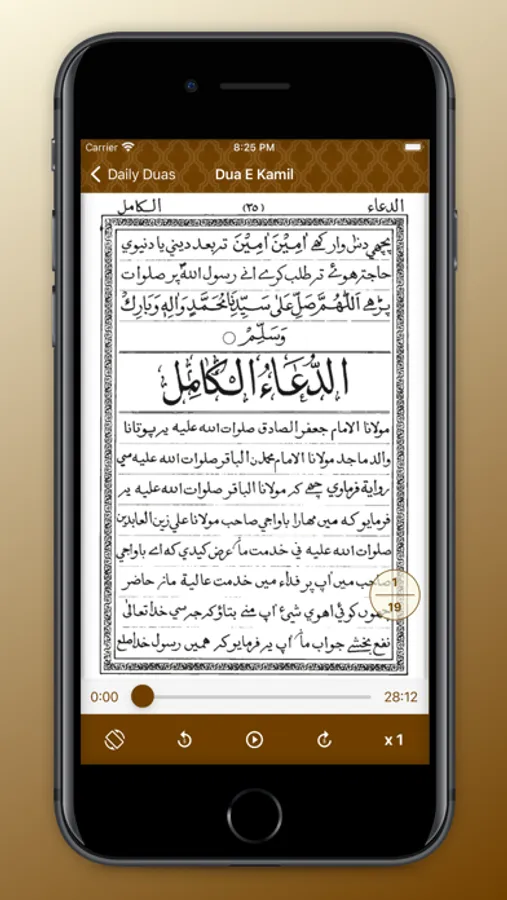 Carrier 8:25 PM
Daily Duas Dua E Kamil
الدعاء (٣٥) الكامل
پچھي دنيا وار کھے اٰمِيْنَ اٰمِيْنَ تر بعد ديني يا دنيوي
حاجتر هوئے تر طلب کرے انے رسول الله پر صلوات
پڑھے اَللّٰهُمَّ صَلِّ عَلٰى سَيِّدِنَا مُحَمَّدٍ وَاٰلِهٖ وَبَارِكْ
وَسَلِّمْ
الدُّعَاءُ الْكَامِلُ
مولانا الامام جعفر الصادق صلوات الله عليه يہ پوتانا
والد ماجد مولانا الامام محمد الباقر صلوات الله عليه سي
رواية فرماوي چھے کر مولانا الباقر صلوات الله عليه يہ
فرمايو که ميں مهارا باواجي صاحب مولانا علي زين العابدين
صلوات الله عليه ني خدمت ما عرض کيدي که اے باواجي
صاحب ميں اپ پر فداء ميں خدمت عالية مانر حاضر
کوئي اهوي شئ اپ منے بتاؤ که جرسي خدا تعالى
نفع بخشے جواب ما اپ يہ فرمايو که هميں رسول خدا صلع
1
19
0:00 28:12
x 1